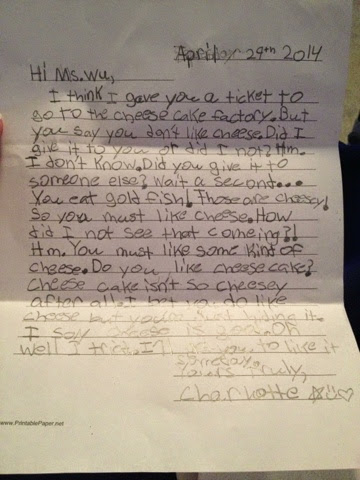 April 29th 2014
Hi Ms. Wu,
I think I gave you a ticket to
go to the cheese cake factory. But
you say you don't like cheese. Did I
give it to you or did I not? Hm.
I don't know. Did you give it to
someone else? Wait a second...
You eat gold fish! Those are cheesy!
So you must like cheese. How
did I not see that comeing?!
Hm. You must like some kind of
cheese. Do you like cheese cake?
Cheese cake isn't so cheesey
after all. I bet you do like
cheese but you're just hiding it.
I say cheese is good. Oh
well I tried. I'll get you to like it
someday.
Yours Truly,
Charlotte
www.PrintablePaper.net